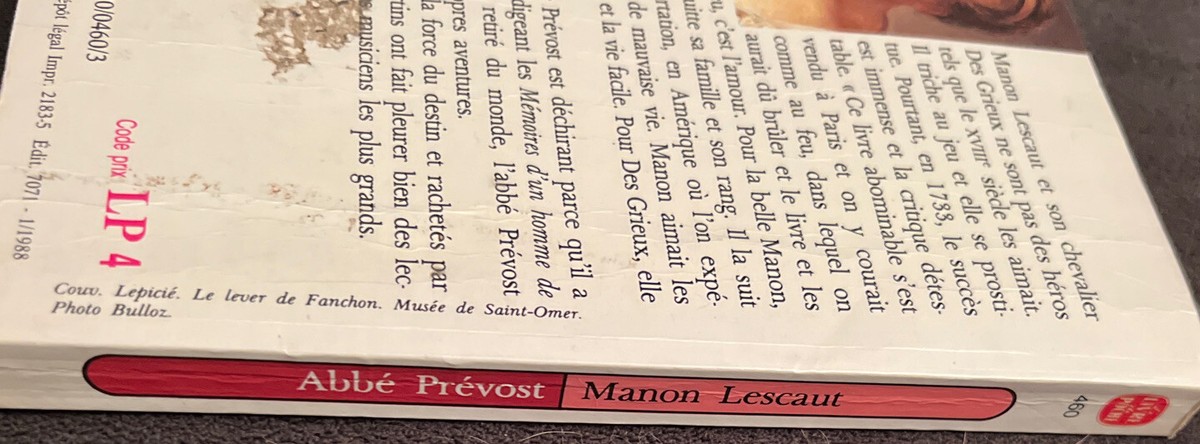 Manon Lescaut et son chevalier
Des Grieux ne sont pas des héros
tels que le XVIIIe siècle les aimait.
Il triche au jeu et elle se prosti-
tue. Pourtant, en 1733, le succès
est immense et la critique détes-
table. « Ce livre abominable s'est
vendu à Paris et on y courait
comme au feu, dans lequel on
aurait dû brûler et le livre et les
, c'est l'amour. Pour la belle Manon,
sa famille et son rang. Il la suit
en Amérique où l'on expé-
de mauvaise vie. Manon aimait les
et la vie facile. Pour Des Grieux, elle
Prévost est déchirant parce qu'il a
les Mémoires d'un homme de
retiré du monde, l'abbé Prévost
aventures.
la force du destin et rachetés par
ont fait pleurer bien des lec-
musiciens les plus grands.
Couv. Lepicié. Le lever de Fanchon. Musée de Saint-Omer.
Photo Bulloz.
0/0460/3
Code prix LP 4
légal Impr. 2183-5 Édit. 7071 - 1/1988
Abbé Prévost | Manon Lescaut
460
LE LIVRE DE POCHE